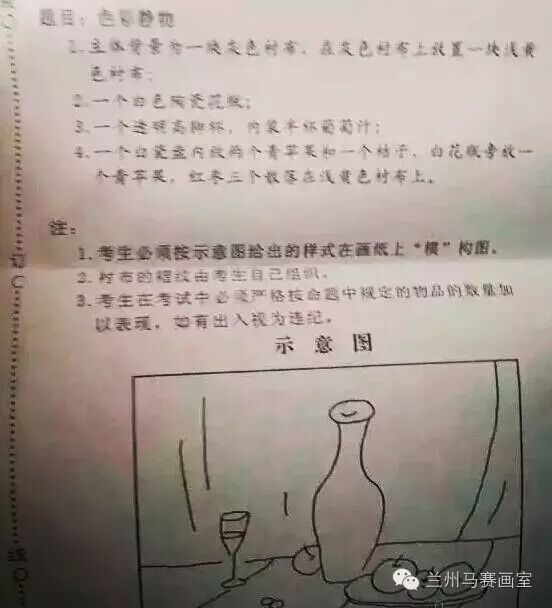 题目：色彩静物
1.主体背景为一块灰色衬布，在灰色衬布上放置一块浅黄
色衬布；
2.一个白色陶瓷花瓶；
3.一个透明高脚杯，内装半杯葡萄汁；
4.一个白瓷盘内放两个青苹果和一个桔子，白花瓶旁放一
个青苹果，红枣三个散落在浅黄色衬布上。
注：
1.考生必须按示意图给出的样式在画纸上“横”构图。
2.衬布的褶纹由考生自己组织。
3.考生在考试中必须严格按命题中规定的物品的数量加
以表现，如有出入视为违纪。
示 意 图
兰州马赛画室